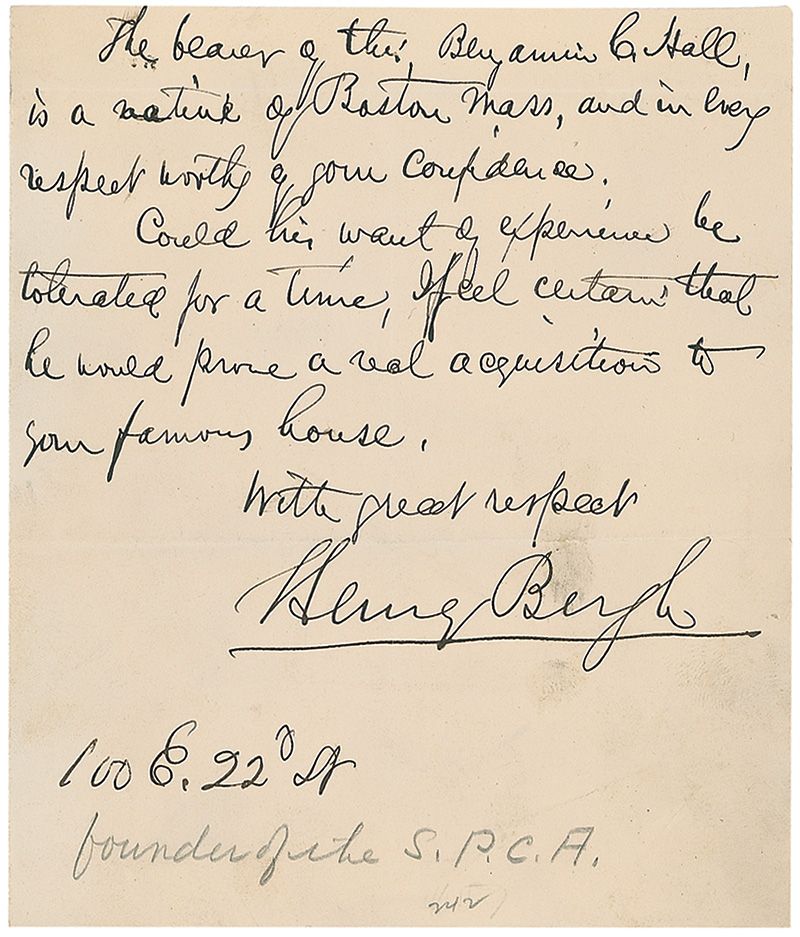 The bearer of this, Benjamin C. Hall,
is a native of Boston Mass, and in every
respect worthy of your confidence.
Could his want of experience be
tolerated for a time, I feel certain that
he would prove a real acquisition to
your famous house.
With great respect
Henry Bergh
100 E. 22d St
founder of the S.P.C.A.
242